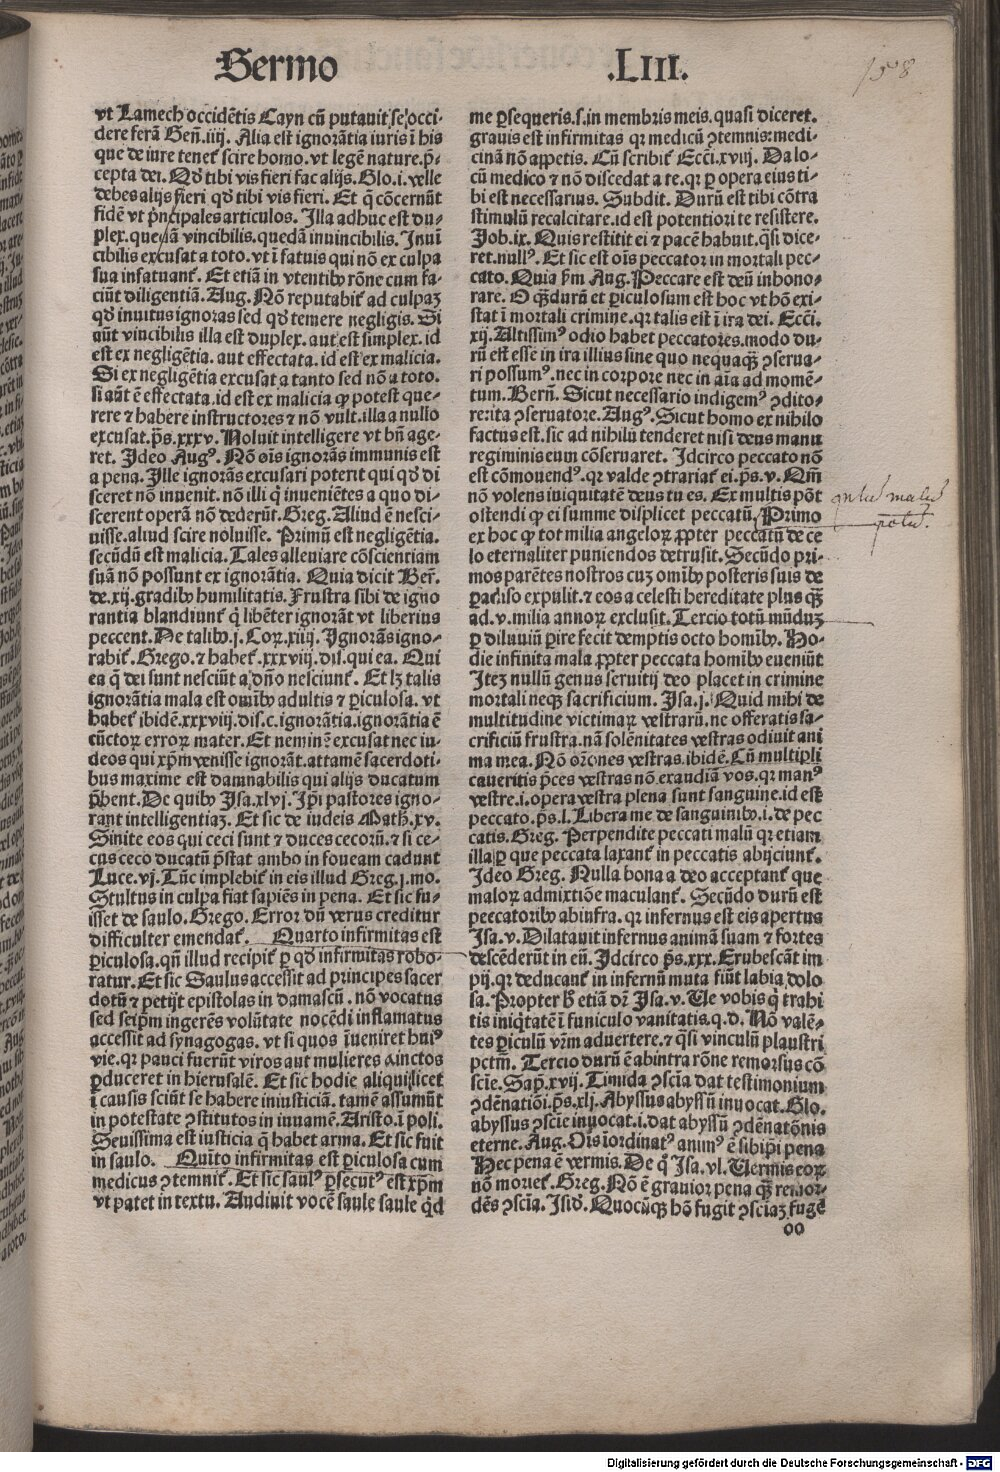 Sermo .LIII.
158
vt Lamech occidētis Cayn cū putauit se occi-
dere ferā Geñ.iiij. Alia est ignorātia iuris ī his
que de iure tenet᷑ scire homo. vt legē nature.p̄-
cepta dei. Qd̓ tibi vis fieri fac alijs. Glo.i.velle
debes alijs fieri qd̓ tibi vis fieri. Et q̄ cōcernūt
fidē vt p̄ncipales articulos. Illa adhuc est du-
plex. quedā vincibilis. quedā inuincibilis. Inuī
cibilis excusat a toto. vt ī fatuis qui nō ex culpa
sua infatuant᷑. Et etiā in vtentibꝰ rōne cum fa-
ciūt diligentiā. Aug. Nō reputabit᷑ ad culpaꝫ
qd̓ inuitus ignoras sed qd̓ temere negligis. Si
aūt vincibilis illa est duplex. aut est simplex. id
est ex negligētia. aut effectata. id est ex malicia.
Si ex negligētia excusat a tanto sed nō a toto.
si aūt ē effectata. id est ex malicia qꝛ potest que-
rere ⁊ habere instructores ⁊ nō vult. illa a nullo
excusat. p̄s.xxxv. Noluit intelligere vt bn̄ age-
ret. Ideo Augꝰ. Nō oīs ignorās immunis est
a pena. Ille ignorās excusari poterit qui qd̓ di
sceret nō inuenit. nō illi q̄ inueniētes a quo di-
scerent operā nō dederūt. Greg. Aliud ē nesci-
uisse. aliud scire noluisse. Primū est negligētia.
secūdū est malicia. Tales alleuiare cōscientiam
suā nō possunt ex ignorātia. Quia dicit Ber̄.
de.xij. gradibꝰ humilitatis. Frustra sibi de igno
rantia blandiunt᷑ q̄ libēter ignorāt vt liberius
peccent. De talibꝰ.j. Coꝝ.xiiij. Ignorās igno-
rabit᷑. Grego.⁊ habet᷑.xxxviij.dil.qui ea. Qui
ea q̄ dei sunt nesciūt a dn̄o nesciunt᷑. Et lꝫ talis
ignorātia mala est omībꝰ adultis ⁊ ꝑiculosa. vt
habet᷑ ibidē.xxxviij.dis.c.ignorātia.ignorātia ē
cūctoꝝ erroꝝ mater. Et neminē excusat nec iu-
deos qui xp̄m venisse ignorāt. attamē sacerdoti-
bus maxime est damnabilis qui alijs ducatum
p̄bent. De quibꝰ Isa.xlvj. Ip̄i pastores igno-
rant intelligentiaꝫ. Et sic de iudeis Math.xv.
Sinite eos qui ceci sunt ⁊ duces cecorū.⁊ si ce-
cus ceco ducatū p̄stat ambo in foueam cadunt
Luce.vj. Tūc implebit᷑ in eis illud Greg.j.mo.
Stultus in culpa fiat sapiēs in pena. Et sic fu-
isset de saulo. Grego. Error dū verus creditur
difficulter emendat᷑. Quarto infirmitas est
ꝑiculosa. qn̄ illud recipit᷑ ꝑ qd̓ infirmitas robo-
ratur. Et sic Saulus accessit ad principes sacer
dotū ⁊ petijt epistolas in damascū. nō vocatus
sed seip̄m ingerēs volūtate nocēdi inflamatus
accessit ad synagogas. vt si quos īueniret huiꝰ
vie. qꝛ pauci fuerūt viros aut mulieres vinctos
ꝑduceret in hierusalē. Et sic hodie aliqui licet
ī causis sciūt se habere iniusticiā. tamē assumūt
in potestate ↄstitutos in iuuamē. Aristo.ī poli.
Seuissima est iusticia q̄ habet arma. Et sic fuit
in saulo. Quīto infirmitas est ꝑiculosa cum
medicus ↄtemnit᷑. Et sic saulꝰ ꝑsecutꝰ est xp̄m
vt patet in textu. Audiuit vocē saule saule q̇d
me ꝑsequeris.s.in membris meis. quasi diceret.
grauis est infirmitas qꝛ medicū ↄtemnis: medi-
cinā nō appetis. Cū scribit᷑ Ecci.xviij. Da lo-
cū medico ⁊ nō discedat a te. qꝛ ꝑ opera eius ti-
bi est necessarius. Subdit. Durū est tibi cōtra
stimulū recalcitare. id est potentiori te resistere.
Job.ix. Quis restitit ei ⁊ pacē habuit. q̄si dice-
ret. nullꝰ. Et sic est oīs peccator in mortali pec-
cato. Quia ẜm Aug. Peccare est deū inhono-
rare. O q̄ꝫ durū et ꝑiculosum est hoc vt hō exi-
stat ī mortali crimine. qꝛ talis est ī ira dei. Ecci.
xij. Altissimꝰ odio habet peccatores. modo du-
rū est esse in ira illius sine quo nequaq̄ꝫ ↄserua-
ri possumꝰ. nec in corpore nec in aīa ad momē-
tum. Bern̄. Sicut necessario indigemꝰ ↄdito-
re: ita ↄseruatore. Augꝰ. Sicut homo ex nihilo
factus est. sic ad nihilū tenderet nisi deus manu
regiminis eum cōseruaret. Idcirco peccato nō
est cōmouendꝰ. qꝛ valde ↄtrariat᷑ ei. p̄s.v. Qm̄
nō volens iniquitatē deus tu es. Ex multis pōt
ostendi qꝙ ei summe displicet peccatū. Primo
ex hoc qꝙ tot milia angeloꝝ ꝓpter peccatū de ce
lo eternaliter puniendos detrusit. Secūdo pri-
mos parētes nostros cuꝫ omībꝰ posteris suis de
paradiso expulit.⁊ eos a celesti hereditate plus q̄ꝫ
ad.v.milia annoꝝ exclusit. Tercio totū mūduꝫ
ꝑ diluuiū ꝑire fecit demptis octo homībꝰ. Ho-
die infinita mala ꝓpter peccata homībꝰ eueniūt
Iteꝫ nullū genus seruitij deo placet in crimine
mortali neqꝫ sacrificium. Isa.j. Quid mihi de
multitudine victimaꝝ vestrarū. ne offeratis sa-
crificiū frustra. nā solēnitates vestras odiuit ani
ma mea. Nō orōnes vestras. ibidē. Cū multipli
caueritis p̄ces vestras nō exaudiā vos. qꝛ manꝰ
vestre.i.opera vestra plena sunt sanguine. id est
peccato. p̄s.l. Libera me de sanguinibꝰ.i.de pec
catis. Greg. Perpendite peccati malū qꝛ etiam
illa ꝑ que peccata laxant᷑ in peccatis abijciunt᷑.
Ideo Greg. Nulla bona a deo acceptant᷑ que
maloꝝ admixtiōe maculant᷑. Secūdo durū est
peccatoribꝰ ab infra. qꝛ infernus est eis apertus
Isa.v. Dilatauit infernus animā suam ⁊ fortes
descēderūt in eū. Idcirco p̄s.xxx. Erubescāt im
pij. qꝛ deducant᷑ in infernū muta fiūt labia dolo
sa. Propter hͦ etiā dr̄ Isa.v. Ve vobis q̇ trahi
tis iniq̇tatē ī funiculo vanitatis. q.d. Nō valē-
tes ꝑiculū vr̄m aduertere.⁊ q̄si vinculū plaustri
pctm̄. Tercio durū ē ab intra rōne remorsus cō
scīe. Sap̄.xvij. Timida ↄscīa dat testimonium
ↄdēnatiōi. p̄s.xlj. Abyssus abyssū inuocat. Glo.
abyssus ↄscīe inuocat.i.dat abyssū ↄdēnatōnis
eterne. Aug. Oīs iordinatꝰ animꝰ ē sibiip̄i pena
Hec pena ē vermis. De q̊ Isa.vl. Vermis eoꝝ
nō moriet᷑. Greg. Nō ē grauior pena q̄ꝫ remor-
dēs ↄscīa. Isid. Quocūqꝫ hō fugit ↄsciaꝫ fugē
oo
Digitalisierung gefördert durch die Deutsche Forschungsgemeinschaft - DFG